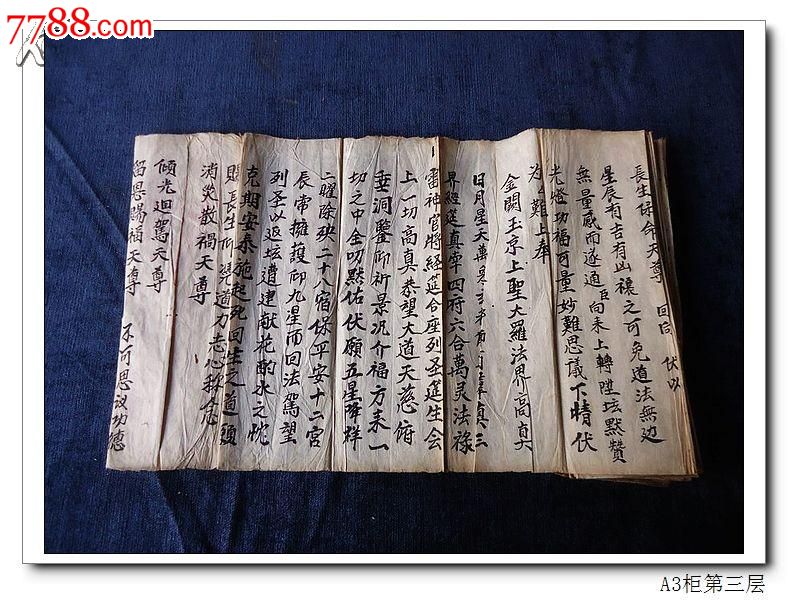 7788.com
長生保命天尊 回向 伏以
星辰有吉有凶禳之可免道法無边
無量感而遂通臣向来上轉陞坛默贊
光燈功福可量妙難思議下情伏
为难上奉
金闕玉京上聖大羅法界高真
日月星天萬 真三
界經筵真宰四府六合萬灵法禄
雷神官將経筵合座列圣筵生会
上一切高真恭望大道天慈俯
垂洞鑒仰祈景况介福方来一
切之中全叨默佑伏願五星降祥
二曜除殃二十八宿保平安十二宮
辰常擁護仰九星而回法駕望
列圣以返坛遣建献花酌水之忱
克期安泰施起死回生之道頭
賜長生仰 道力志心称念
消災散禍天尊
傾光迴駕天尊
留恩賜福天尊 不可思议功德
A3柜第三层